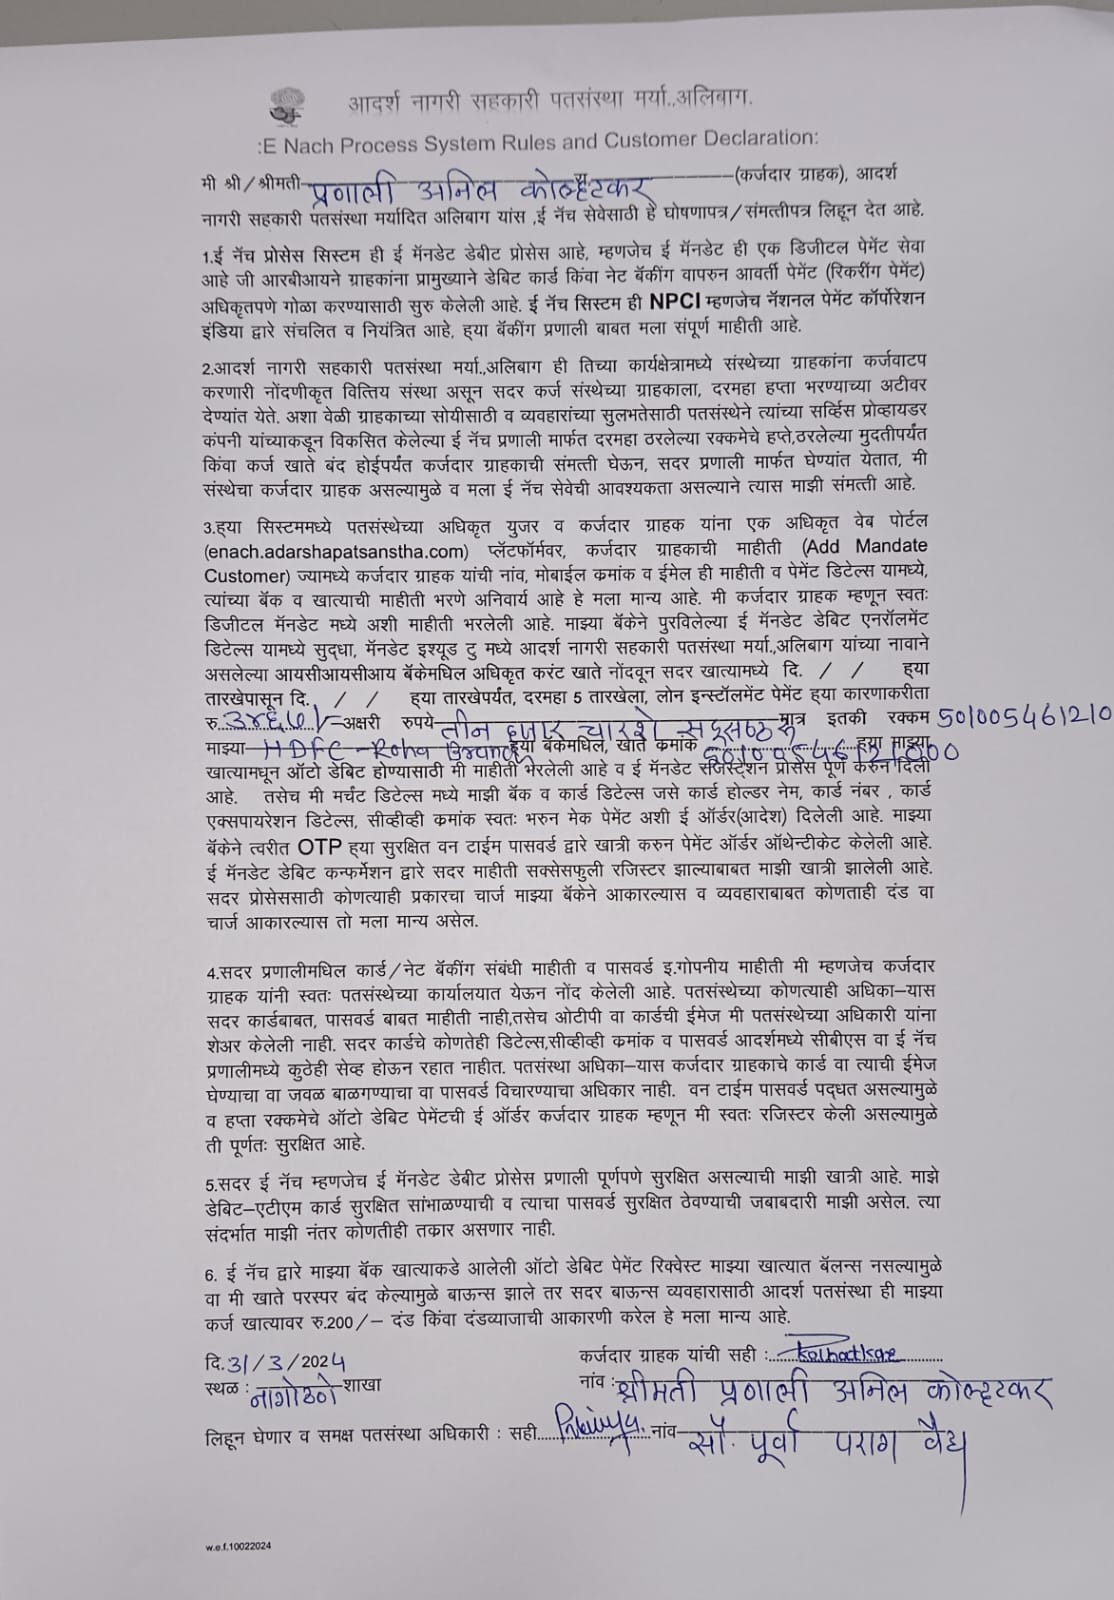 आदर्श नागरी सहकारी पतसंस्था मर्या.,अलिबाग.
:E Nach Process System Rules and Customer Declaration:
मी श्री/श्रीमती प्रणाली अनिल कोल्हटकर (कर्जदार ग्राहक), आदर्श
नागरी सहकारी पतसंस्था मर्यादित अलिबाग यांस ,ई नॅच सेवेसाठी हे घोषणापत्र/संमत्तीपत्र लिहून देत आहे.
1.ई नॅच प्रोसेस सिस्टम ही ई मॅनडेट डेबीट प्रोसेस आहे, म्हणजेच ई मॅनडेट ही एक डिजीटल पेमेंट सेवा
आहे जी आरबीआयने ग्राहकांना प्रामुख्याने डेबिट कार्ड किंवा नेट बॅकींग वापरुन आवर्ती पेमेंट (रिकरींग पेमेंट)
अधिकृतपणे गोळा करण्यासाठी सुरु केलेली आहे. ई नॅच सिस्टम ही NPCI म्हणजेच नॅशनल पेमेंट कॉर्पोरेशन
इंडिया द्वारे संचलित व नियंत्रित आहे, ह्या बॅकींग प्रणाली बाबत मला संपूर्ण माहीती आहे.
2.आदर्श नागरी सहकारी पतसंस्था मर्या.,अलिबाग ही तिच्या कार्यक्षेत्रामध्ये संस्थेच्या ग्राहकांना कर्जवाटप
करणारी नोंदणीकृत वित्तिय संस्था असून सदर कर्ज संस्थेच्या ग्राहकाला, दरमहा हप्ता भरण्याच्या अटीवर
देण्यांत येते. अशा वेळी ग्राहकाच्या सोयीसाठी व व्यवहारांच्या सुलभतेसाठी पतसंस्थेने त्यांच्या सर्व्हिस प्रोव्हायडर
कंपनी यांच्याकडून विकसित केलेल्या ई नॅच प्रणाली मार्फत दरमहा ठरलेल्या रक्कमेचे हप्ते,ठरलेल्या मुदतीपर्यंत
किंवा कर्ज खाते बंद होईपर्यंत कर्जदार ग्राहकाची संमत्ती घेऊन, सदर प्रणाली मार्फत घेण्यांत येतात, मी
संस्थेचा कर्जदार ग्राहक असल्यामुळे व मला ई नॅच सेवेची आवश्यकता असल्याने त्यास माझी संमत्ती आहे.
3.ह्या सिस्टममध्ये पतसंस्थेच्या अधिकृत युजर व कर्जदार ग्राहक यांना एक अधिकृत वेब पोर्टल
(enach.adarshapatsanstha.com) प्लॅटफॉर्मवर, कर्जदार ग्राहकाची माहीती (Add Mandate
Customer) ज्यामध्ये कर्जदार ग्राहक यांची नांव, मोबाईल क्रमांक व ईमेल ही माहीती व पेमेंट डिटेल्स यामध्ये,
त्यांच्या बॅक व खात्याची माहीती भरणे अनिवार्य आहे हे मला मान्य आहे. मी कर्जदार ग्राहक म्हणून स्वतः
डिजीटल मॅनडेट मध्ये अशी माहीती भरलेली आहे. माझ्या बॅकेने पुरविलेल्या ई मॅनडेट डेबिट एनरॉलमेंट
डिटेल्स यामध्ये सुद्धा, मॅनडेट इश्यूड टु मध्ये आदर्श नागरी सहकारी पतसंस्था मर्या.,अलिबाग यांच्या नावाने
असलेल्या आयसीआयसीआय बॅकेमधिल अधिकृत करंट खाते नोंदवून सदर खात्यामध्ये दि. / / ह्या
तारखेपासून दि. / / ह्या तारखेपर्यंत, दरमहा 5 तारखेला, लोन इन्स्टॉलमेंट पेमेंट ह्या कारणाकरीता
रु.३४६७/- अक्षरी रुपये तीन हजार चारशे सदुसष्ठ रु मात्र इतकी रक्कम 501005461210
माझ्या HDFC - Roha Branch ह्या बॅकेमधिल, खाते क्रमांक 50100546121000 ह्या माझ्या
खात्यामधून ऑटो डेबिट होण्यासाठी मी माहीती भरलेली आहे व ई मॅनडेट रजिस्ट्रेशन प्रोसेस पूर्ण करुन दिली
आहे. तसेच मी मर्चंट डिटेल्स मध्ये माझी बॅक व कार्ड डिटेल्स जसे कार्ड होल्डर नेम, कार्ड नंबर , कार्ड
एक्सपायरेशन डिटेल्स, सीव्हीव्ही क्रमांक स्वतः भरुन मेक पेमेंट अशी ई ऑर्डर(आदेश) दिलेली आहे. माझ्या
बॅकेने त्वरीत OTP ह्या सुरक्षित वन टाईम पासवर्ड द्वारे खात्री करुन पेमेंट ऑर्डर ऑथेन्टीकेट केलेली आहे.
ई मॅनडेट डेबिट कन्फर्मेशन द्वारे सदर माहीती सक्सेसफुली रजिस्टर झाल्याबाबत माझी खात्री झालेली आहे.
सदर प्रोसेससाठी कोणत्याही प्रकारचा चार्ज माझ्या बॅकेने आकारल्यास व व्यवहाराबाबत कोणताही दंड वा
चार्ज आकारल्यास तो मला मान्य असेल.
4.सदर प्रणालीमधिल कार्ड/नेट बॅकींग संबंधी माहीती व पासवर्ड इ.गोपनीय माहीती मी म्हणजेच कर्जदार
ग्राहक यांनी स्वतः पतसंस्थेच्या कार्यालयात येऊन नोंद केलेली आहे. पतसंस्थेच्या कोणत्याही अधिका–यास
सदर कार्डबाबत, पासवर्ड बाबत माहीती नाही,तसेच ओटीपी वा कार्डची ईमेज मी पतसंस्थेच्या अधिकारी यांना
शेअर केलेली नाही. सदर कार्डचे कोणतेही डिटेल्स,सीव्हीव्ही क्रमांक व पासवर्ड आदर्शमध्ये सीबीएस वा ई नॅच
प्रणालीमध्ये कुठेही सेव्ह होऊन रहात नाहीत. पतसंस्था अधिका–यास कर्जदार ग्राहकाचे कार्ड वा त्याची ईमेज
घेण्याचा वा जवळ बाळगण्याचा वा पासवर्ड विचारण्याचा अधिकार नाही. वन टाईम पासवर्ड पद्धत असल्यामुळे
व हप्ता रक्कमेचे ऑटो डेबिट पेमेंटची ई ऑर्डर कर्जदार ग्राहक म्हणून मी स्वतः रजिस्टर केली असल्यामुळे
ती पूर्णतः सुरक्षित आहे.
5.सदर ई नॅच म्हणजेच ई मॅनडेट डेबीट प्रोसेस प्रणाली पूर्णपणे सुरक्षित असल्याची माझी खात्री आहे. माझे
डेबिट–एटीएम कार्ड सुरक्षित सांभाळण्याची व त्याचा पासवर्ड सुरक्षित ठेवण्याची जबाबदारी माझी असेल. त्या
संदर्भात माझी नंतर कोणतीही तक्रार असणार नाही.
6. ई नॅच द्वारे माझ्या बॅक खात्याकडे आलेली ऑटो डेबिट पेमेंट रिक्वेस्ट माझ्या खात्यात बॅलन्स नसल्यामुळे
वा मी खाते परस्पर बंद केल्यामुळे बाऊन्स झाले तर सदर बाऊन्स व्यवहारासाठी आदर्श पतसंस्था ही माझ्या
कर्ज खात्यावर रु.200/– दंड किंवा दंडव्याजाची आकारणी करेल हे मला मान्य आहे.
दि.31/3/2024 कर्जदार ग्राहक यांची सही : Kolhatkar
स्थळ : नागोठणे शाखा नांव : श्रीमती प्रणाली अनिल कोल्हटकर
लिहून घेणार व समक्ष पतसंस्था अधिकारी : सही नांव सौ. पूर्वा पराग वैद्य
w.e.f.10022024